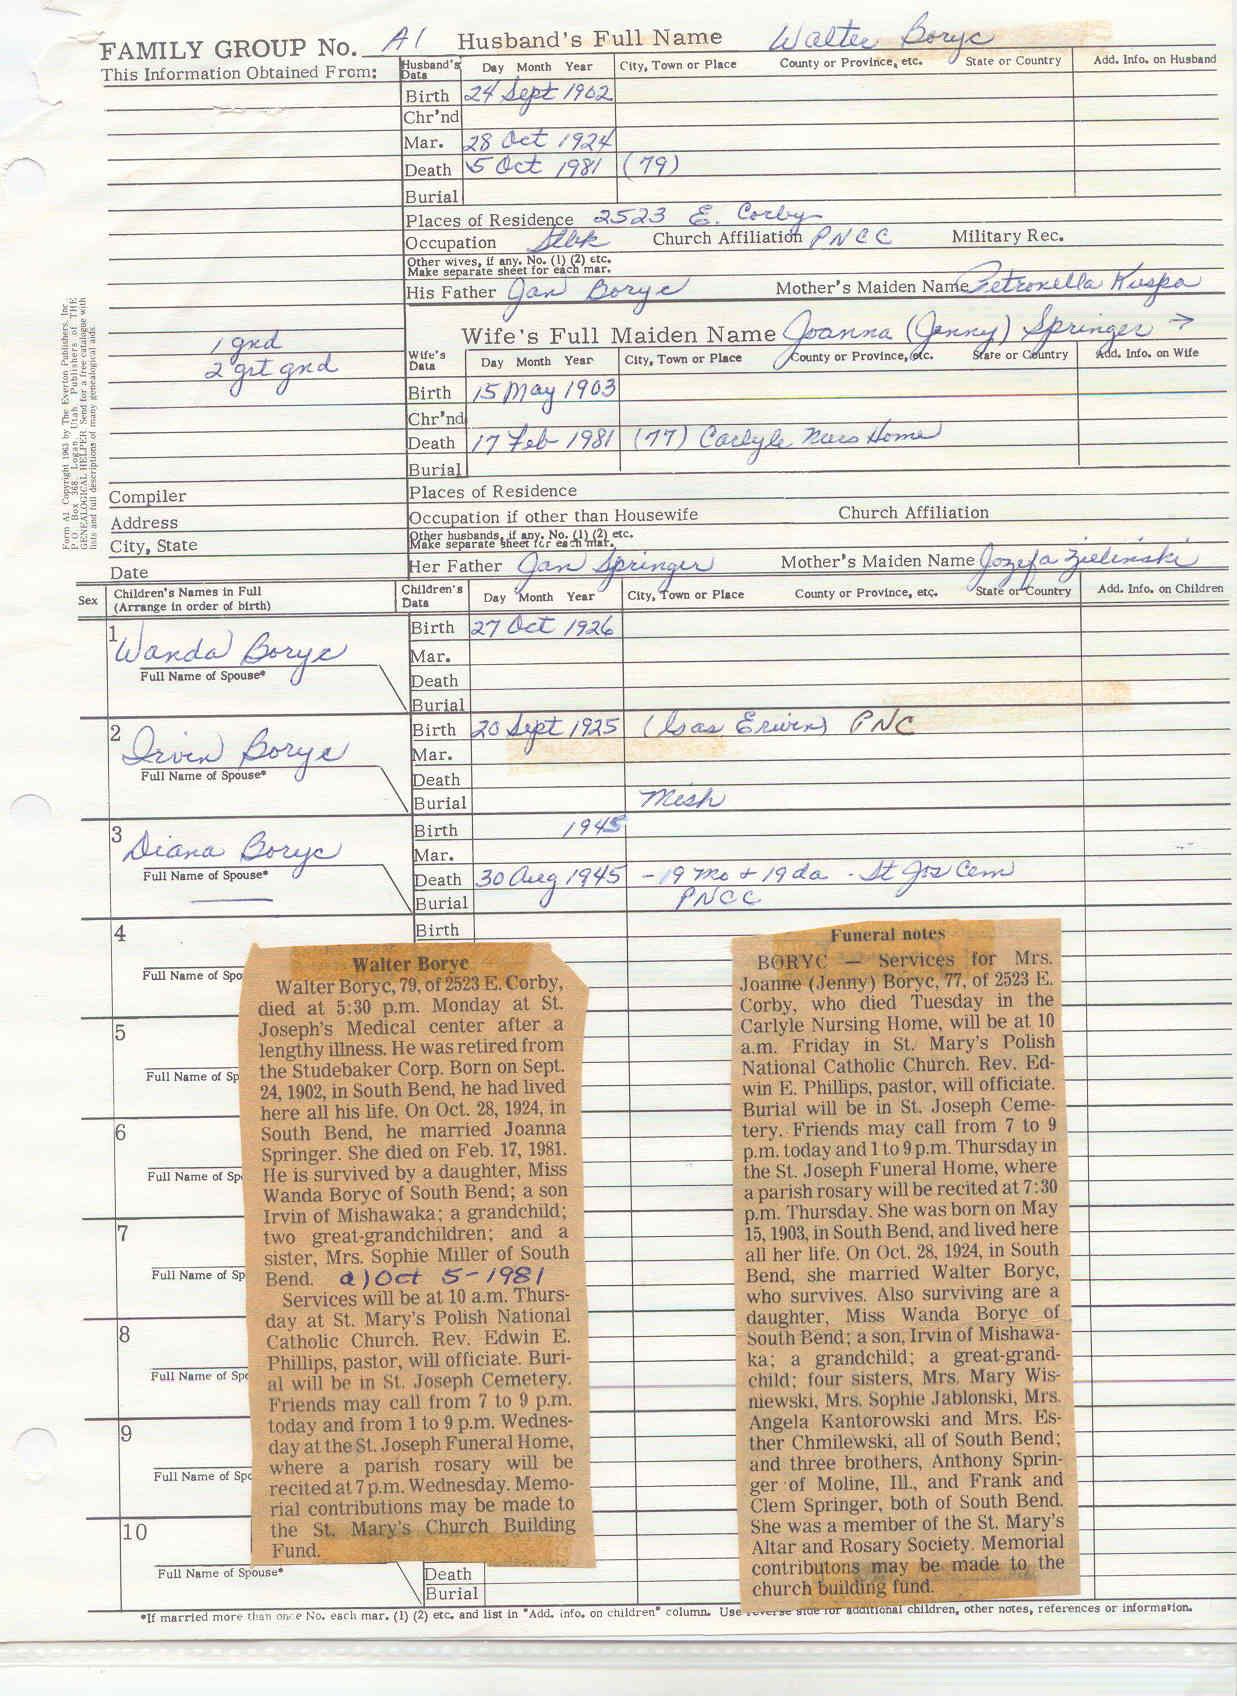 FAMILY GROUP No. A1 Husband's Full Name Walter Boryc
This Information Obtained From:
Husband's Data Day Month Year City, Town or Place County or Province, etc. State or Country Add. Info. on Husband
Birth 24 Sept 1902
Chr'nd
Mar. 28 Oct 1924
Death 5 Oct 1981 (79)
Burial
Places of Residence 2523 E. Corby
Occupation Stbk Church Affiliation PNCC Military Rec.
Other wives, if any. No. (1) (2) etc.
Make separate sheet for each mar.
His Father Jan Boryc Mother's Maiden Name Petronella Kuspa
1 gnd
2 grt gnd
Wife's Full Maiden Name Joanna (Jenny) Springer →
Wife's Data Day Month Year City, Town or Place County or Province, etc. State or Country Add. Info. on Wife
Birth 15 May 1903
Chr'nd
Death 17 Feb 1981 (77) Carlyle Nurs Home
Burial
Form A1 Copyright 1963 by The Everton Publishers, Inc.,
P. O. Box 368, Logan, Utah. Publishers of THE
GENEALOGICAL HELPER. Send for a free catalogue with
lists and full descriptions of many genealogical aids.
Compiler
Address
City, State
Date
Places of Residence
Occupation if other than Housewife Church Affiliation
Other husbands, if any. No. (1) (2) etc.
Make separate sheet for each mar.
Her Father Jan Springer Mother's Maiden Name Jozefa Zielinski
Sex Children's Names in Full
(Arrange in order of birth)
Children's Data Day Month Year City, Town or Place County or Province, etc. State or Country Add. Info. on Children
1 Wanda Boryc
Full Name of Spouse*
Birth 27 Oct 1926
Mar.
Death
Burial
2 Irvin Boryc
Full Name of Spouse*
Birth 20 Sept 1925 (Isas Erwin) PNC
Mar.
Death
Burial Mish
3 Diana Boryc
Full Name of Spouse*
Birth 1945
Mar.
Death 30 Aug 1945 - 19 mo + 19 da - St Jos Cem
Burial PNCC
4
Birth
Full Name of Spo
5
Full Name of Sp
6
Full Name of Sp
7
Full Name of Sp
8
Full Name of Spo
9
Full Name of Spo
10
Full Name of Spouse*
Death
Burial
Walter Boryc
Walter Boryc, 79, of 2523 E. Corby,
died at 5:30 p.m. Monday at St.
Joseph's Medical center after a
lengthy illness. He was retired from
the Studebaker Corp. Born on Sept.
24, 1902, in South Bend, he had lived
here all his life. On Oct. 28, 1924, in
South Bend, he married Joanna
Springer. She died on Feb. 17, 1981.
He is survived by a daughter, Miss
Wanda Boryc of South Bend; a son
Irvin of Mishawaka; a grandchild;
two great-grandchildren; and a
sister, Mrs. Sophie Miller of South
Bend. d) Oct 5-1981
Services will be at 10 a.m. Thurs-
day at St. Mary's Polish National
Catholic Church. Rev. Edwin E.
Phillips, pastor, will officiate. Buri-
al will be in St. Joseph Cemetery.
Friends may call from 7 to 9 p.m.
today and from 1 to 9 p.m. Wednes-
day at the St. Joseph Funeral Home,
where a parish rosary will be
recited at 7 p.m. Wednesday. Memo-
rial contributions may be made to
the St. Mary's Church Building
Fund.
Funeral notes
BORYC — Services for Mrs.
Joanne (Jenny) Boryc, 77, of 2523 E.
Corby, who died Tuesday in the
Carlyle Nursing Home, will be at 10
a.m. Friday in St. Mary's Polish
National Catholic Church. Rev. Ed-
win E. Phillips, pastor, will officiate.
Burial will be in St. Joseph Ceme-
tery. Friends may call from 7 to 9
p.m. today and 1 to 9 p.m. Thursday in
the St. Joseph Funeral Home, where
a parish rosary will be recited at 7:30
p.m. Thursday. She was born on May
15, 1903, in South Bend, and lived here
all her life. On Oct. 28, 1924, in South
Bend, she married Walter Boryc,
who survives. Also surviving are a
daughter, Miss Wanda Boryc of
South Bend; a son, Irvin of Mishawa-
ka; a grandchild; a great-grand-
child; four sisters, Mrs. Mary Wis-
niewski, Mrs. Sophie Jablonski, Mrs.
Angela Kantorowski and Mrs. Es-
ther Chmilewski, all of South Bend;
and three brothers, Anthony Sprin-
ger of Moline, Ill., and Frank and
Clem Springer, both of South Bend.
She was a member of the St. Mary's
Altar and Rosary Society. Memorial
contributons may be made to the
church building fund.
*If married more than once No. each mar. (1) (2) etc. and list in "Add. info. on children" column. Use reverse side for additional children, other notes, references or information.